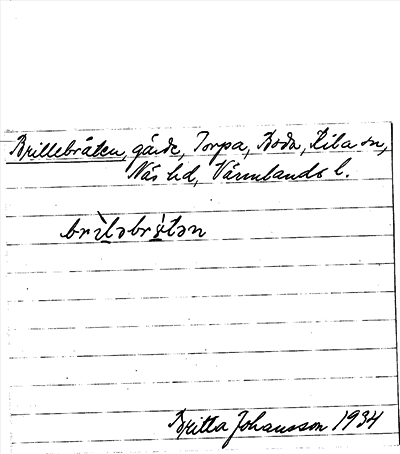 Brillebråten, gärde, Torpa, Boda, Kila sn,
Näs hd, Värmlands l.
brìləbrɷ̀tən
Britta Johansson 1934